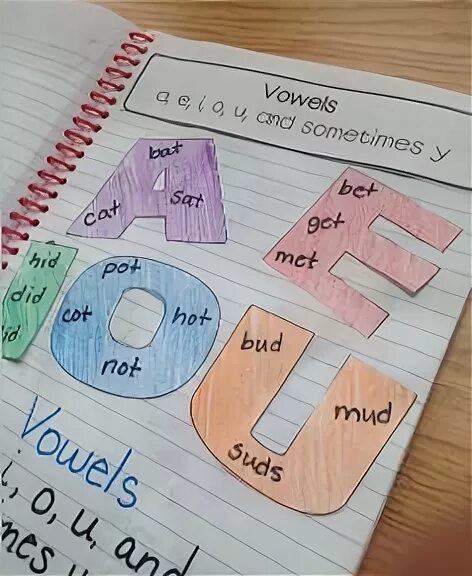 Vowels
a, e, i, o, u, and sometimes y
bat
cat
sat
bet
get
met
hid
did
pot
cot
hot
not
bud
mud
suds
Vowels
i, o, u, and